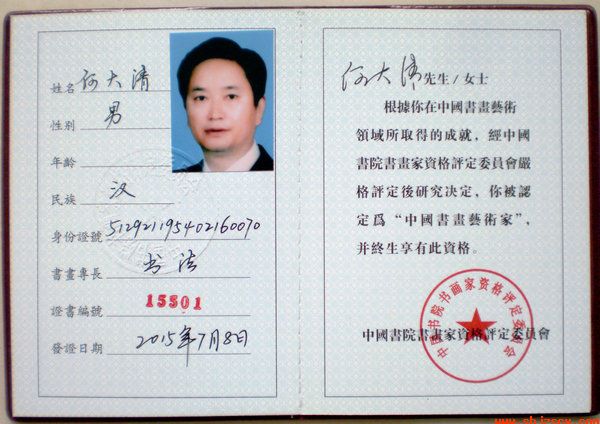 姓名 何大清
性别 男
年齡
民族 汉
身份證號 512921195402160070
書畫專長 书法
證書編號 15501
發證日期 2015年7月8日
何大清 先生/女士
根據你在中國書畫藝術
領域所取得的成就，經中國
書院書畫家資格評定委員會嚴
格評定後研究決定，你被認
定爲“中國書畫藝術家”，
并終生享有此資格。
中國書院書畫家資格評定委員會
中國书院书画家资格评定委员会